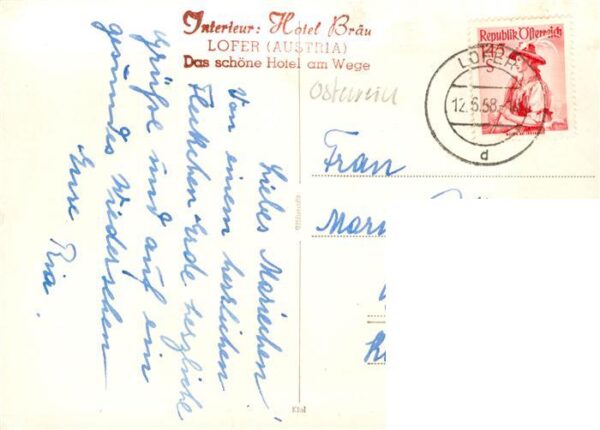 Interieur: Hotel Bräu
LOFER (AUSTRIA)
Das schöne Hotel am Wege
Republik Österreich
1.45
S
LOFER
12.6.58
d
Österreich
Liebes Mariechen!
Von einem herrlichen
Fleckchen Erde herzliche
Grüße und auf ein
gesundes Wiedersehen
Eure Ria.
Frau